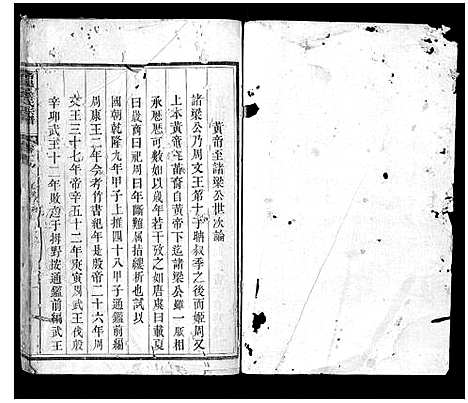 黃帝至諸梁公世次論
諸梁公乃周文王第十子聃叔季之後而姬周又
上本黃帝玄囂裔自黃帝下迄諸梁公雖一脈相
承歷歷可數如以歲年若干攷之如唐虞曰載夏
曰歲商曰祀周曰年斷難屬拮縷析也試以
國朝乾隆九年甲子上推四十八甲子通鑑前編
周康王二年今考竹書紀年是殷帝二十六年周
文王三十七年帝辛五十二年庚寅周武王伐殷
辛卯武王十二年敗逆于坶野按通鑑前編武王